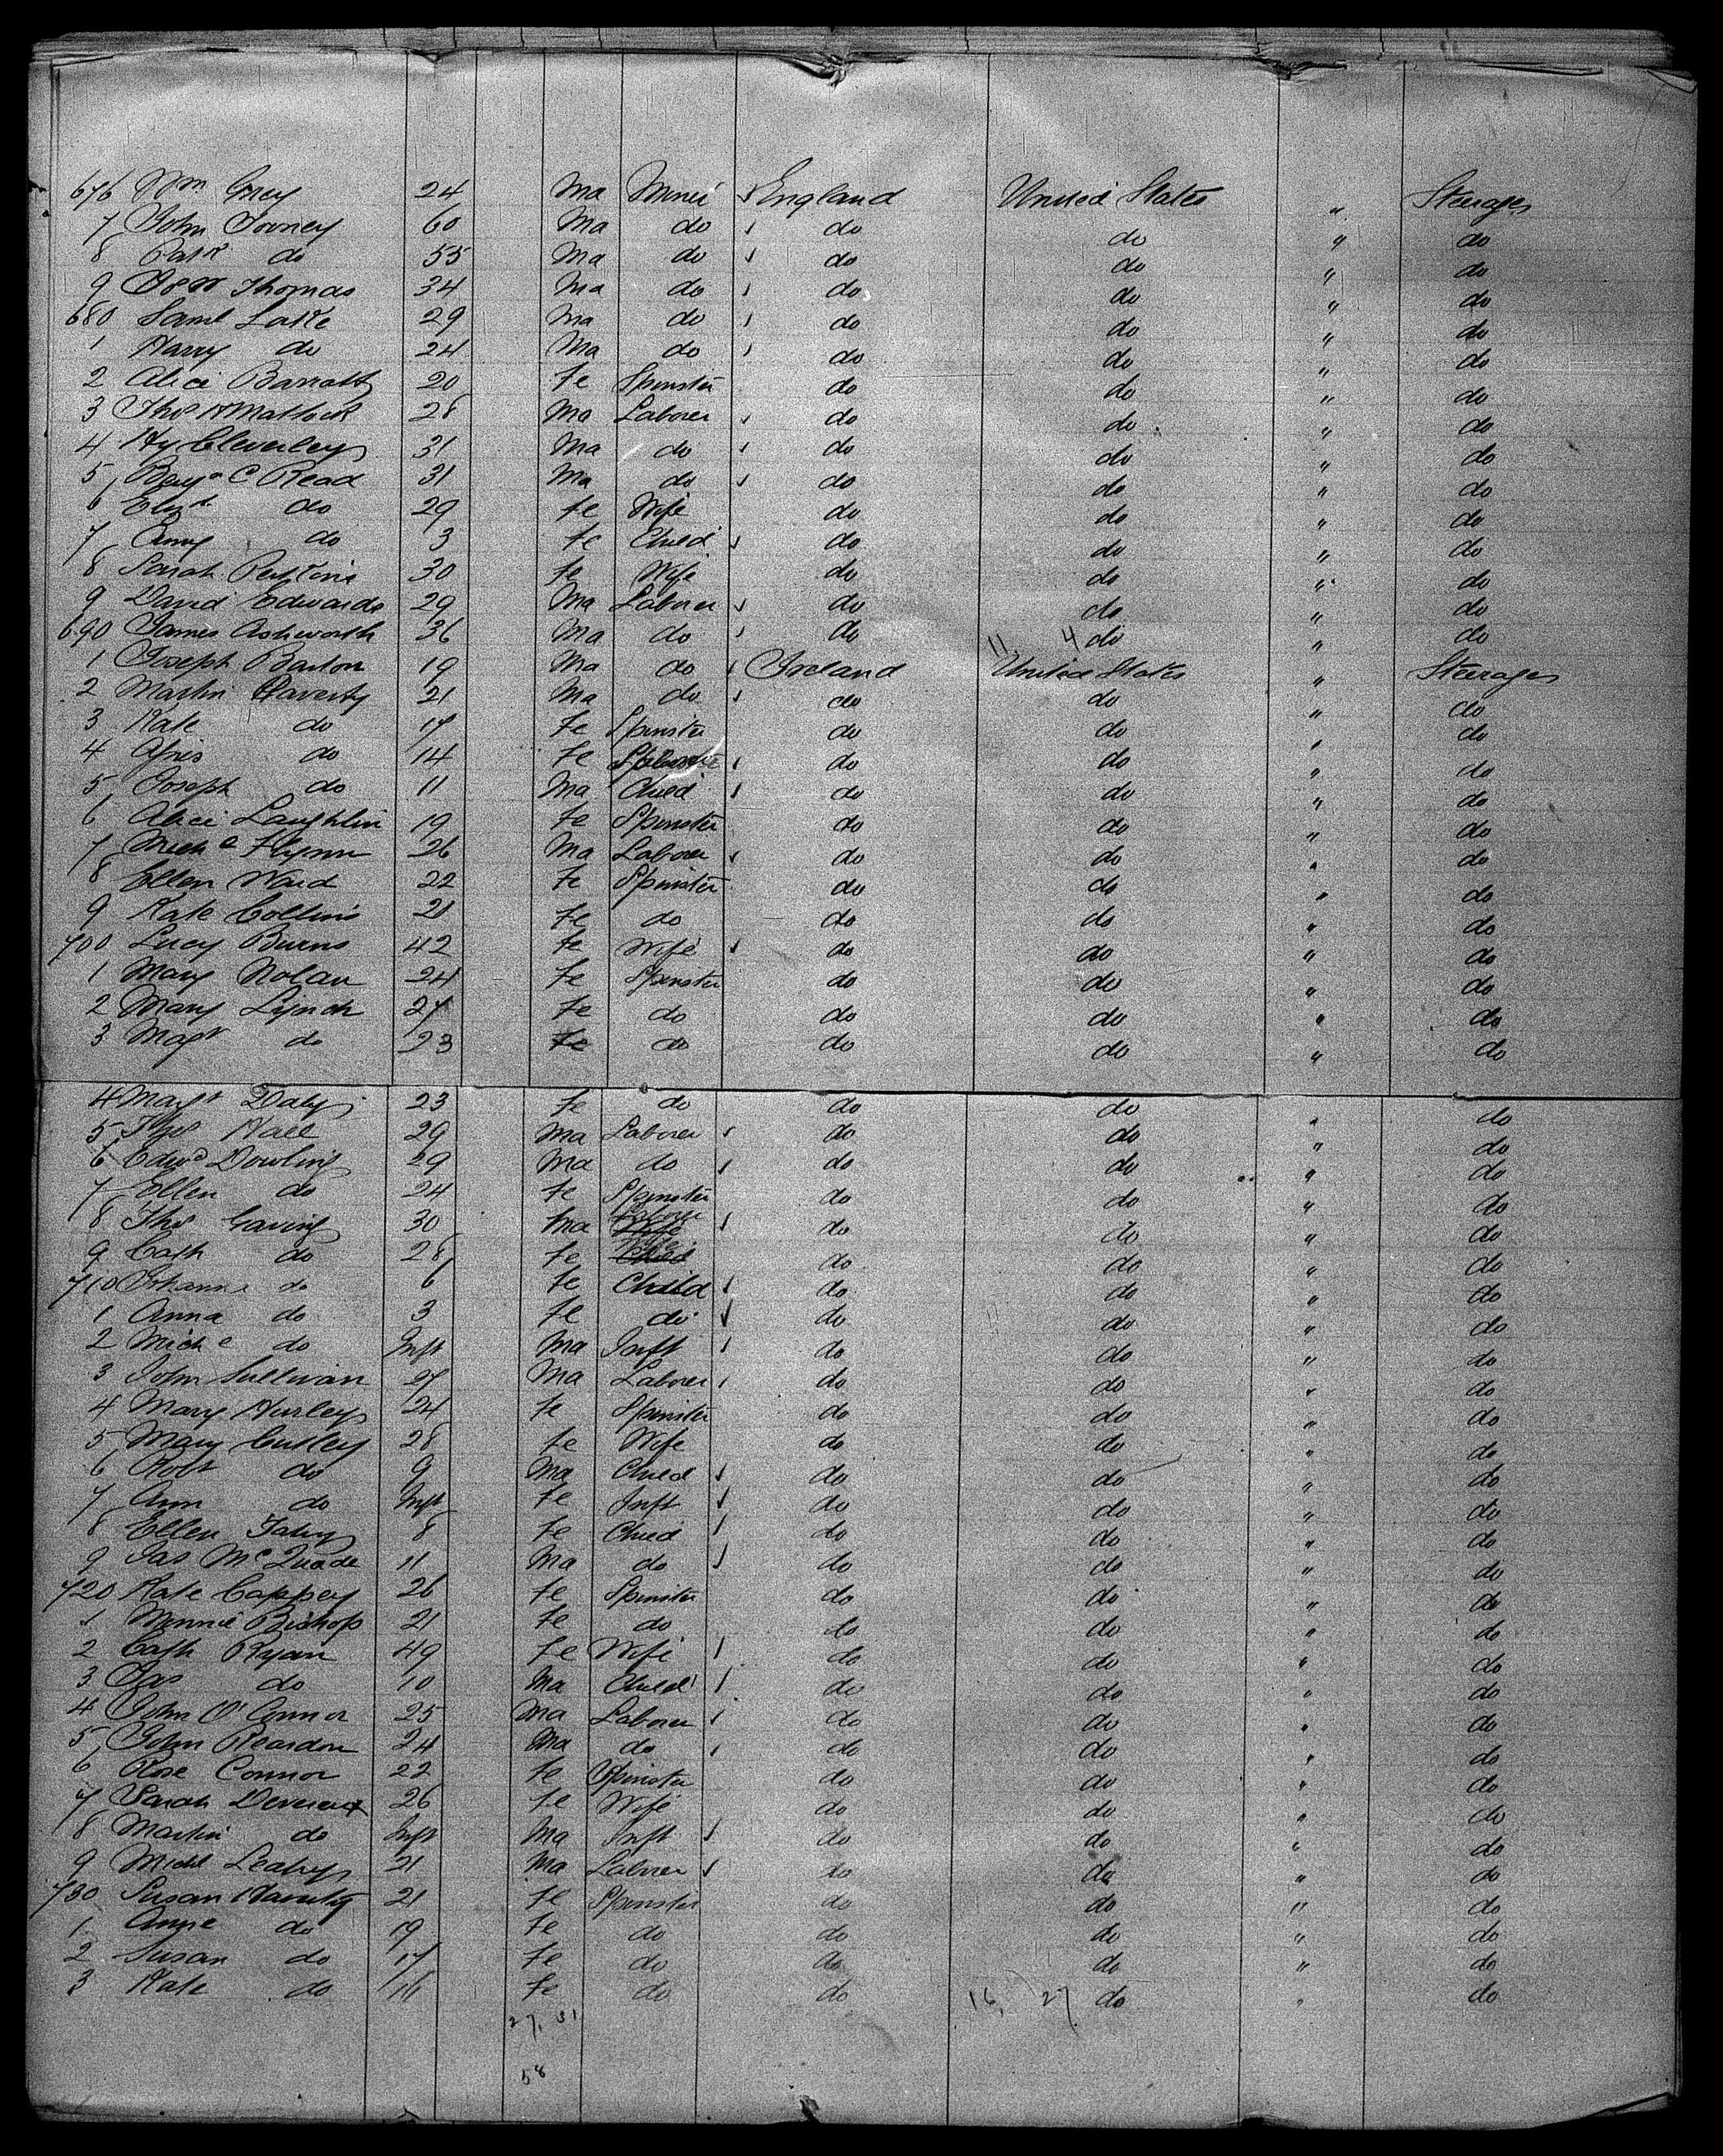 676 Wm Grey 24 Ma Miner England United States " Steerage
7 John Tooney 60 Ma do do do " do
8 Patk do 55 Ma do do do " do
9 Thomas 34 Ma do do do " do
680 Saml Lake 29 Ma do do do " do
1 Harry do 24 Ma do do do " do
2 Alice Barratt 20 Fe Spinster do do " do
3 Thos H Matlock 28 Ma Laborer do do " do
4 Hy Cleverley 31 Ma do do do " do
5 Benjn C Read 31 Ma do do do " do
6 Elizth do 29 Fe Wife do do " do
7 Amy do 3 Fe Child do do " do
8 Sarah Perkins 30 Fe Wife do do " do
9 David Edwards 29 Ma Laborer do do " do
690 James Ashworth 36 Ma do do 11, 4 do " do
1 Joseph Barton 19 Ma do Ireland United States " Steerage
2 Martin Haverty 21 Ma do do do " do
3 Kate do 17 Fe Spinster do do " do
4 Agnes do 14 Fe do do " do
5 Joseph do 11 Ma Child do do " do
6 Alice Laughlin 19 Fe Spinster do do " do
7 Miche Flynn 26 Ma Laborer do do " do
8 Ellen Ward 22 Fe Spinster do do " do
9 Kate Collins 21 Fe do do do " do
700 Lucy Burns 42 Fe Wife do do " do
1 Mary Nolan 24 Fe Spinster do do " do
2 Mary Lynch 27 Fe do do do " do
3 Magt do 23 Fe do do do " do
4 Magt Daly 23 Fe do do do " do
5 Thos Hall 29 Ma Laborer do do " do
6 Edwd Dowling 29 Ma do do do " do
7 Ellen do 24 Fe Spinster do do " do
8 Thos Gaving 30 Ma Laborer Wife do do " do
9 Cath do 28 Fe Wife Child do do " do
710 Johanna do 6 Fe Child do do " do
1 Anna do 3 Fe do do do " do
2 Miche do Inft Ma Inft do do " do
3 John Sullivan 27 Ma Laborer do do " do
4 Mary Hurley 24 Fe Spinster do do " do
5 Mary Cutley 28 Fe Wife do do " do
6 Robt do 9 Ma Child do do " do
7 Ann do Inft Fe Inft do do " do
8 Ellen Fahy 8 Fe Child do do " do
9 Jas McQuade 11 Ma do do do " do
720 Kate Cappey 26 Fe Spinster do do " do
1 Minnie Bishop 21 Fe do do do " do
2 Cath Ryan 49 Fe Wife do do " do
3 Jas do 10 Ma Child do do " do
4 John O'Connor 25 Ma Laborer do do " do
5 John Reardon 24 Ma do do do " do
6 Rose Connor 22 Fe Spinster do do " do
7 Sarah Devereux 26 Fe Wife do do " do
8 Martin do Inft Ma Inft do do " do
9 Michl Leahy 21 Ma Laborer do do " do
730 Susan Haverty 21 Fe Spinster do do " do
1 Anne do 19 Fe do do do " do
2 Susan do 17 Fe do do do " do
3 Kate do 16 Fe do do 16, 27 do " do
27, 31
58